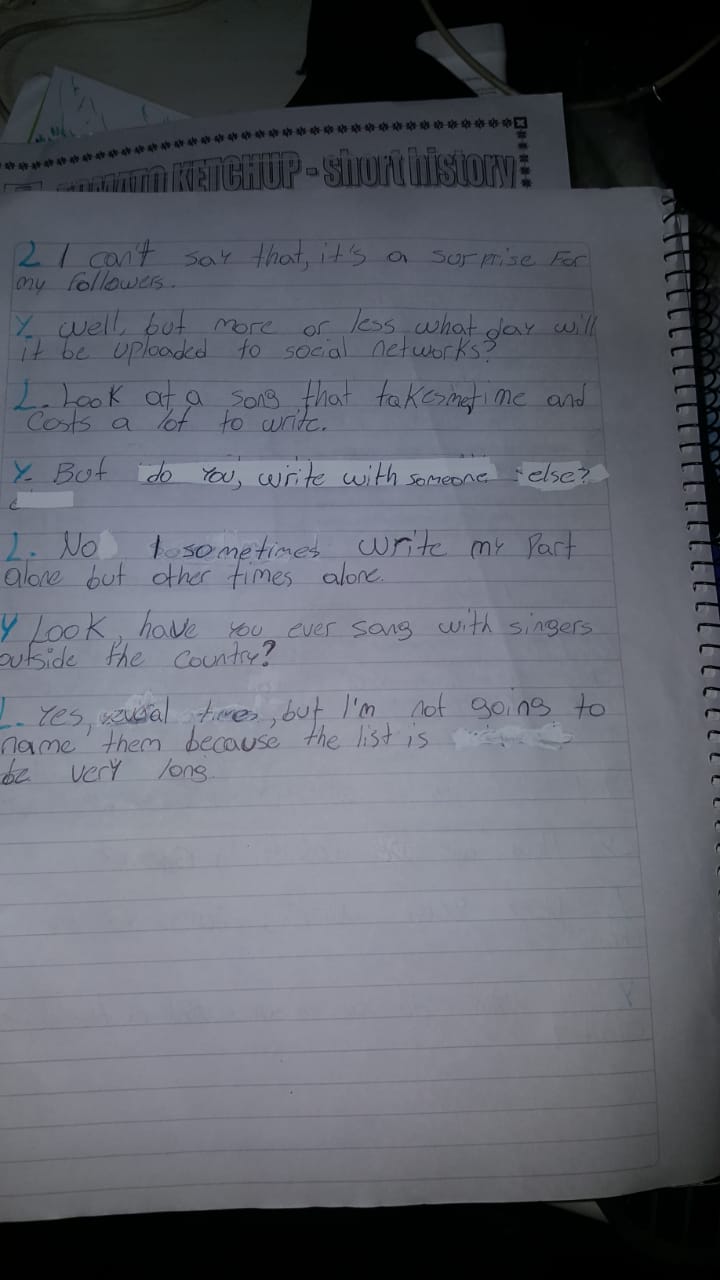 TOMATO KETCHUP - short history
L I can't say that, it's a surprise For
my followers.
Y. well, but more or less what day will
it be uploaded to social networks?
L. Look at a song that takesmetime and
Costs a lot to write.
Y. But do You, write with someone else?
L. No I sometimes write my Part
alone but other times alone.
Y Look, have you ever sang with singers
outside the country?
L. Yes, several times, but I'm not going to
name them because the list is
be very long.